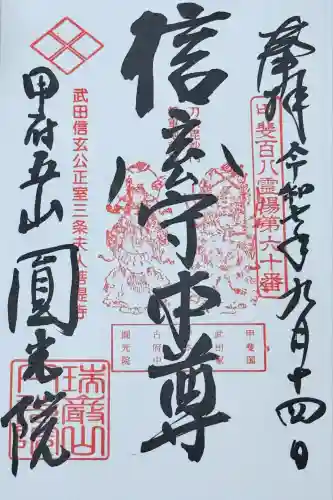 奉拝 令和七年九月十四日
甲斐百八霊場第六十番
信玄守本尊
武田信玄公正室三条夫
甲府五山 圓光院
瑞巌山
甲斐国
圓光院